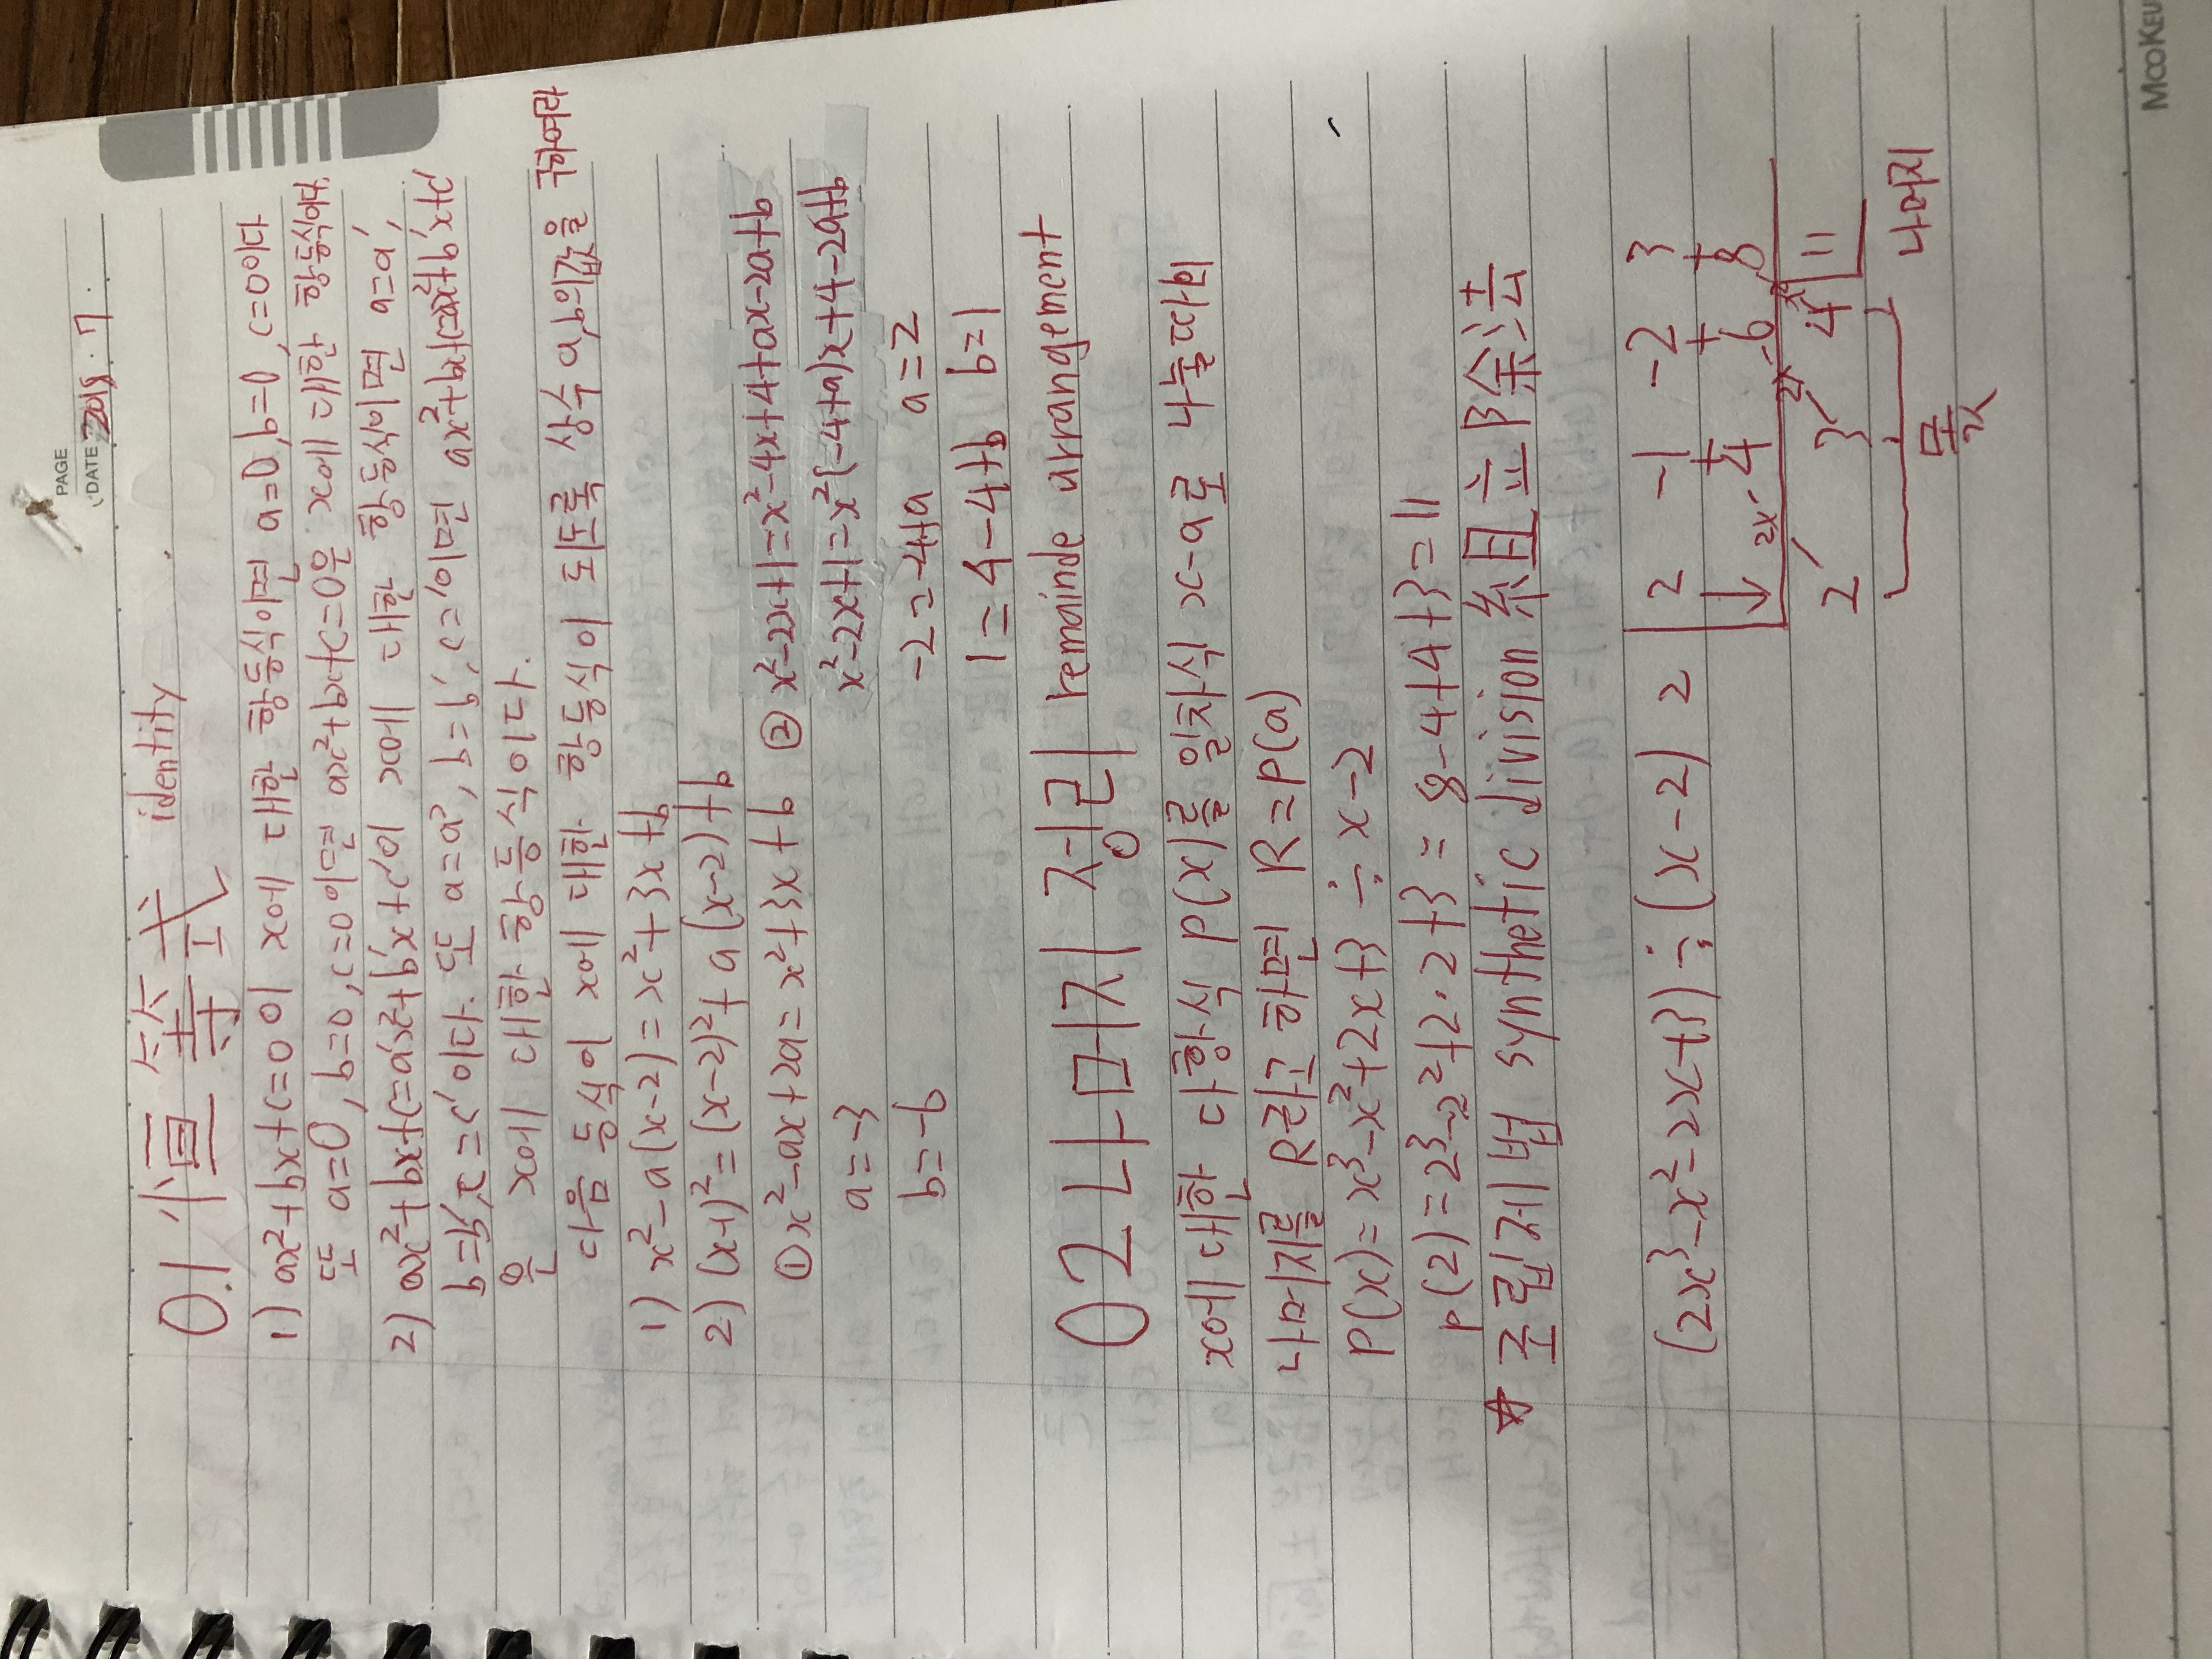 PAGE
DATE 2018. 7.
0.1 恒等式 identity
1) ax²+bx+c=0이 x에 대한 항등식이면 a=0, b=0, c=0이다
또 a=0, b=0, c=0이면 ax²+bx+c=0은 x에 대한 항등식이다.
2) ax²+bx+c=a'x²+b'x+c'이 x에 대한 항등식이면 a=a',
b=b', c=c'이다. 또 a=a', b=b', c=c'이면 ax²+bx+c=a'x²+b'x+c'
은 x에 대한 항등식이다.
다음 등식이 x에 대한 항등식이 되도록 상수 a,b의값을 구하여라
1) x²-a(x-2)=x²+3x+b
2) (x-1)²=(x-2)²+a(x-2)+b
①x²-ax+2a=x²+3x+b ② x²-2x+1=x²-4x+4+ax-2a+b
a=-3 x²-2x+1=x²(-4+a)x+4-2a+b
b=-6 -2=-4+a a=2
1=4-4+b b=1
02 나머지 정리 remainde arrangement
x에 대한 다항식 P(x)를 일차식 x-a로 나눌때의
나머지를 R라고 하면 R=P(a)
P(x)=x³-x²+2x+3 ÷ x-2
P(2)=2³-2²+2·2+3=8-4+4+3=11
☆ 조립제법 synthetic division 組立除法
(2x³-x²-2x+3)÷(x-2) 2 2 -1 -2 3
↓ + + +
4 6 8
2x 2x 2x
2 3 4 11
몫 나머지
MOOKEU